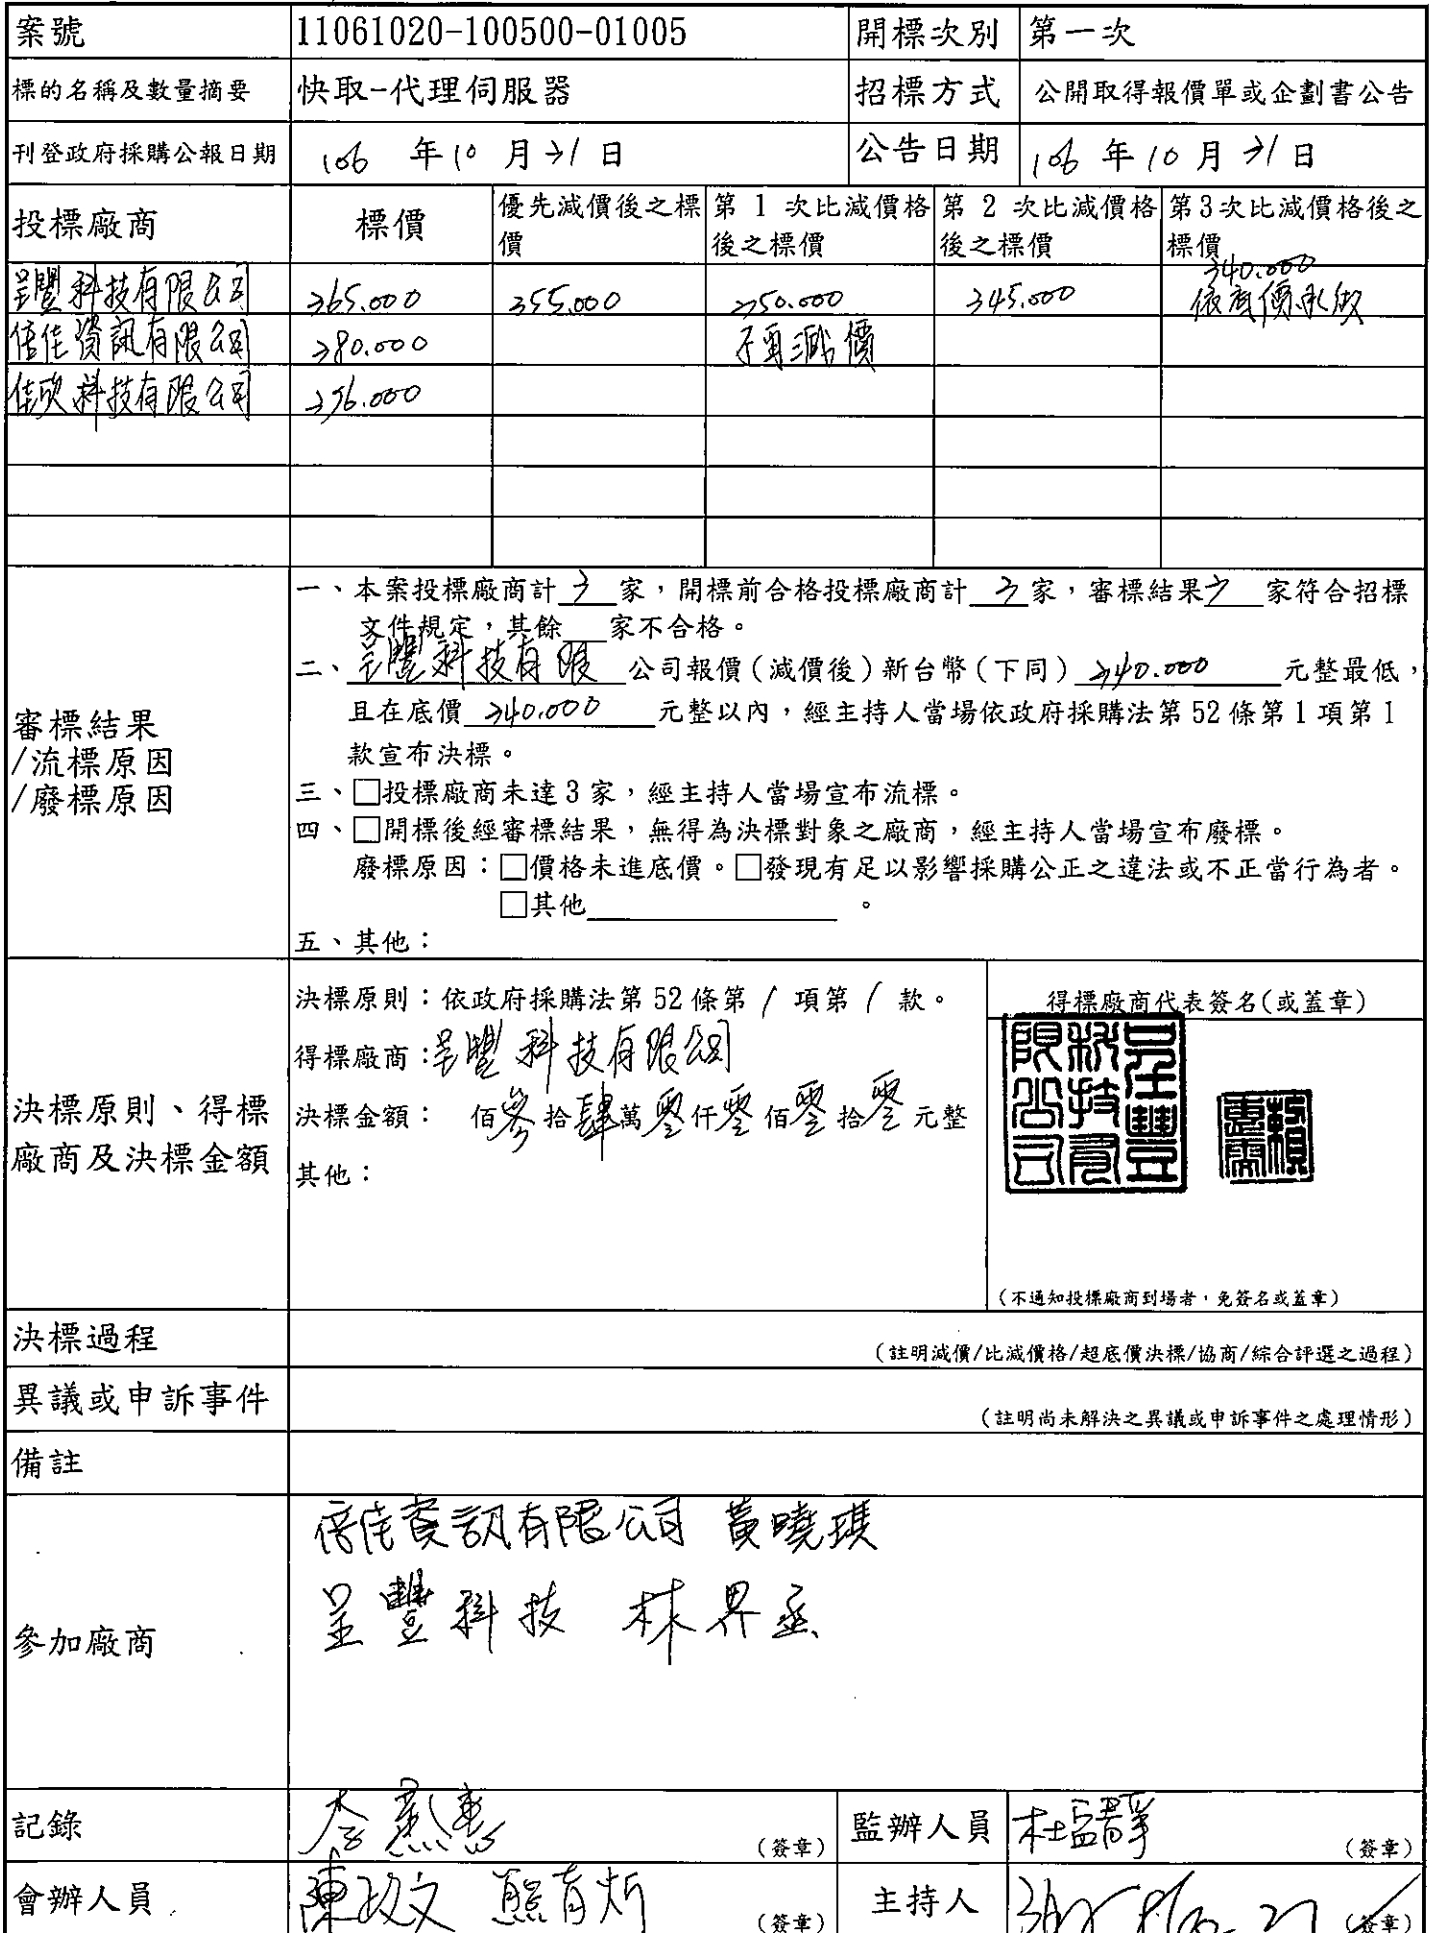 案號 11061020-100500-01005 開標次別 第一次
標的名稱及數量摘要 快取-代理伺服器 招標方式 公開取得報價單或企劃書公告
刊登政府採購公報日期 106 年 10 月 31 日 公告日期 106 年 10 月 31 日
投標廠商 標價 優先減價後之標價 第 1 次比減價格後之標價 第 2 次比減價格後之標價 第3次比減價格後之標價
呈豐科技有限公司 365.000 355.000 350.000 345.000 340.000 依底價承做
倍佳資訊有限公司 380.000 不再減價
佳欣科技有限公司 396.000
審標結果
/流標原因
/廢標原因
一、本案投標廠商計 3 家，開標前合格投標廠商計 3 家，審標結果 3 家符合招標
文件規定，其餘 家不合格。
二、呈豐科技有限 公司報價(減價後)新台幣(下同) 340.000 元整最低，
且在底價 340.000 元整以內，經主持人當場依政府採購法第 52 條第 1 項第 1
款宣布決標。
三、□投標廠商未達 3 家，經主持人當場宣布流標。
四、□開標後經審標結果，無得為決標對象之廠商，經主持人當場宣布廢標。
廢標原因：□價格未進底價。□發現有足以影響採購公正之違法或不正當行為者。
□其他 。
五、其他：
決標原則、得標
廠商及決標金額
決標原則：依政府採購法第 52 條第 1 項第 1 款。
得標廠商：呈豐科技有限公司
決標金額： 佰參拾肆萬零仟零佰零拾零元整
其他：
得標廠商代表簽名(或蓋章)
呈豐科技有限公司
(不通知投標廠商到場者，免簽名或蓋章)
決標過程 (註明減價/比減價格/超底價決標/協商/綜合評選之過程)
異議或申訴事件 (註明尚未解決之異議或申訴事件之處理情形)
備註
參加廠商
倍佳資訊有限公司 黃曉琪
呈豐科技 林界丞
記錄 (簽章) 監辦人員 (簽章)
會辦人員 (簽章) 主持人 (簽章)